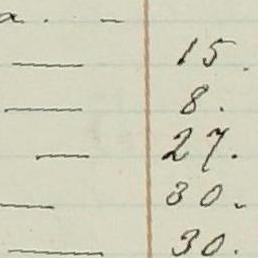 a. —
— 15.
— 8.
— 27.
— 30.
— 30.